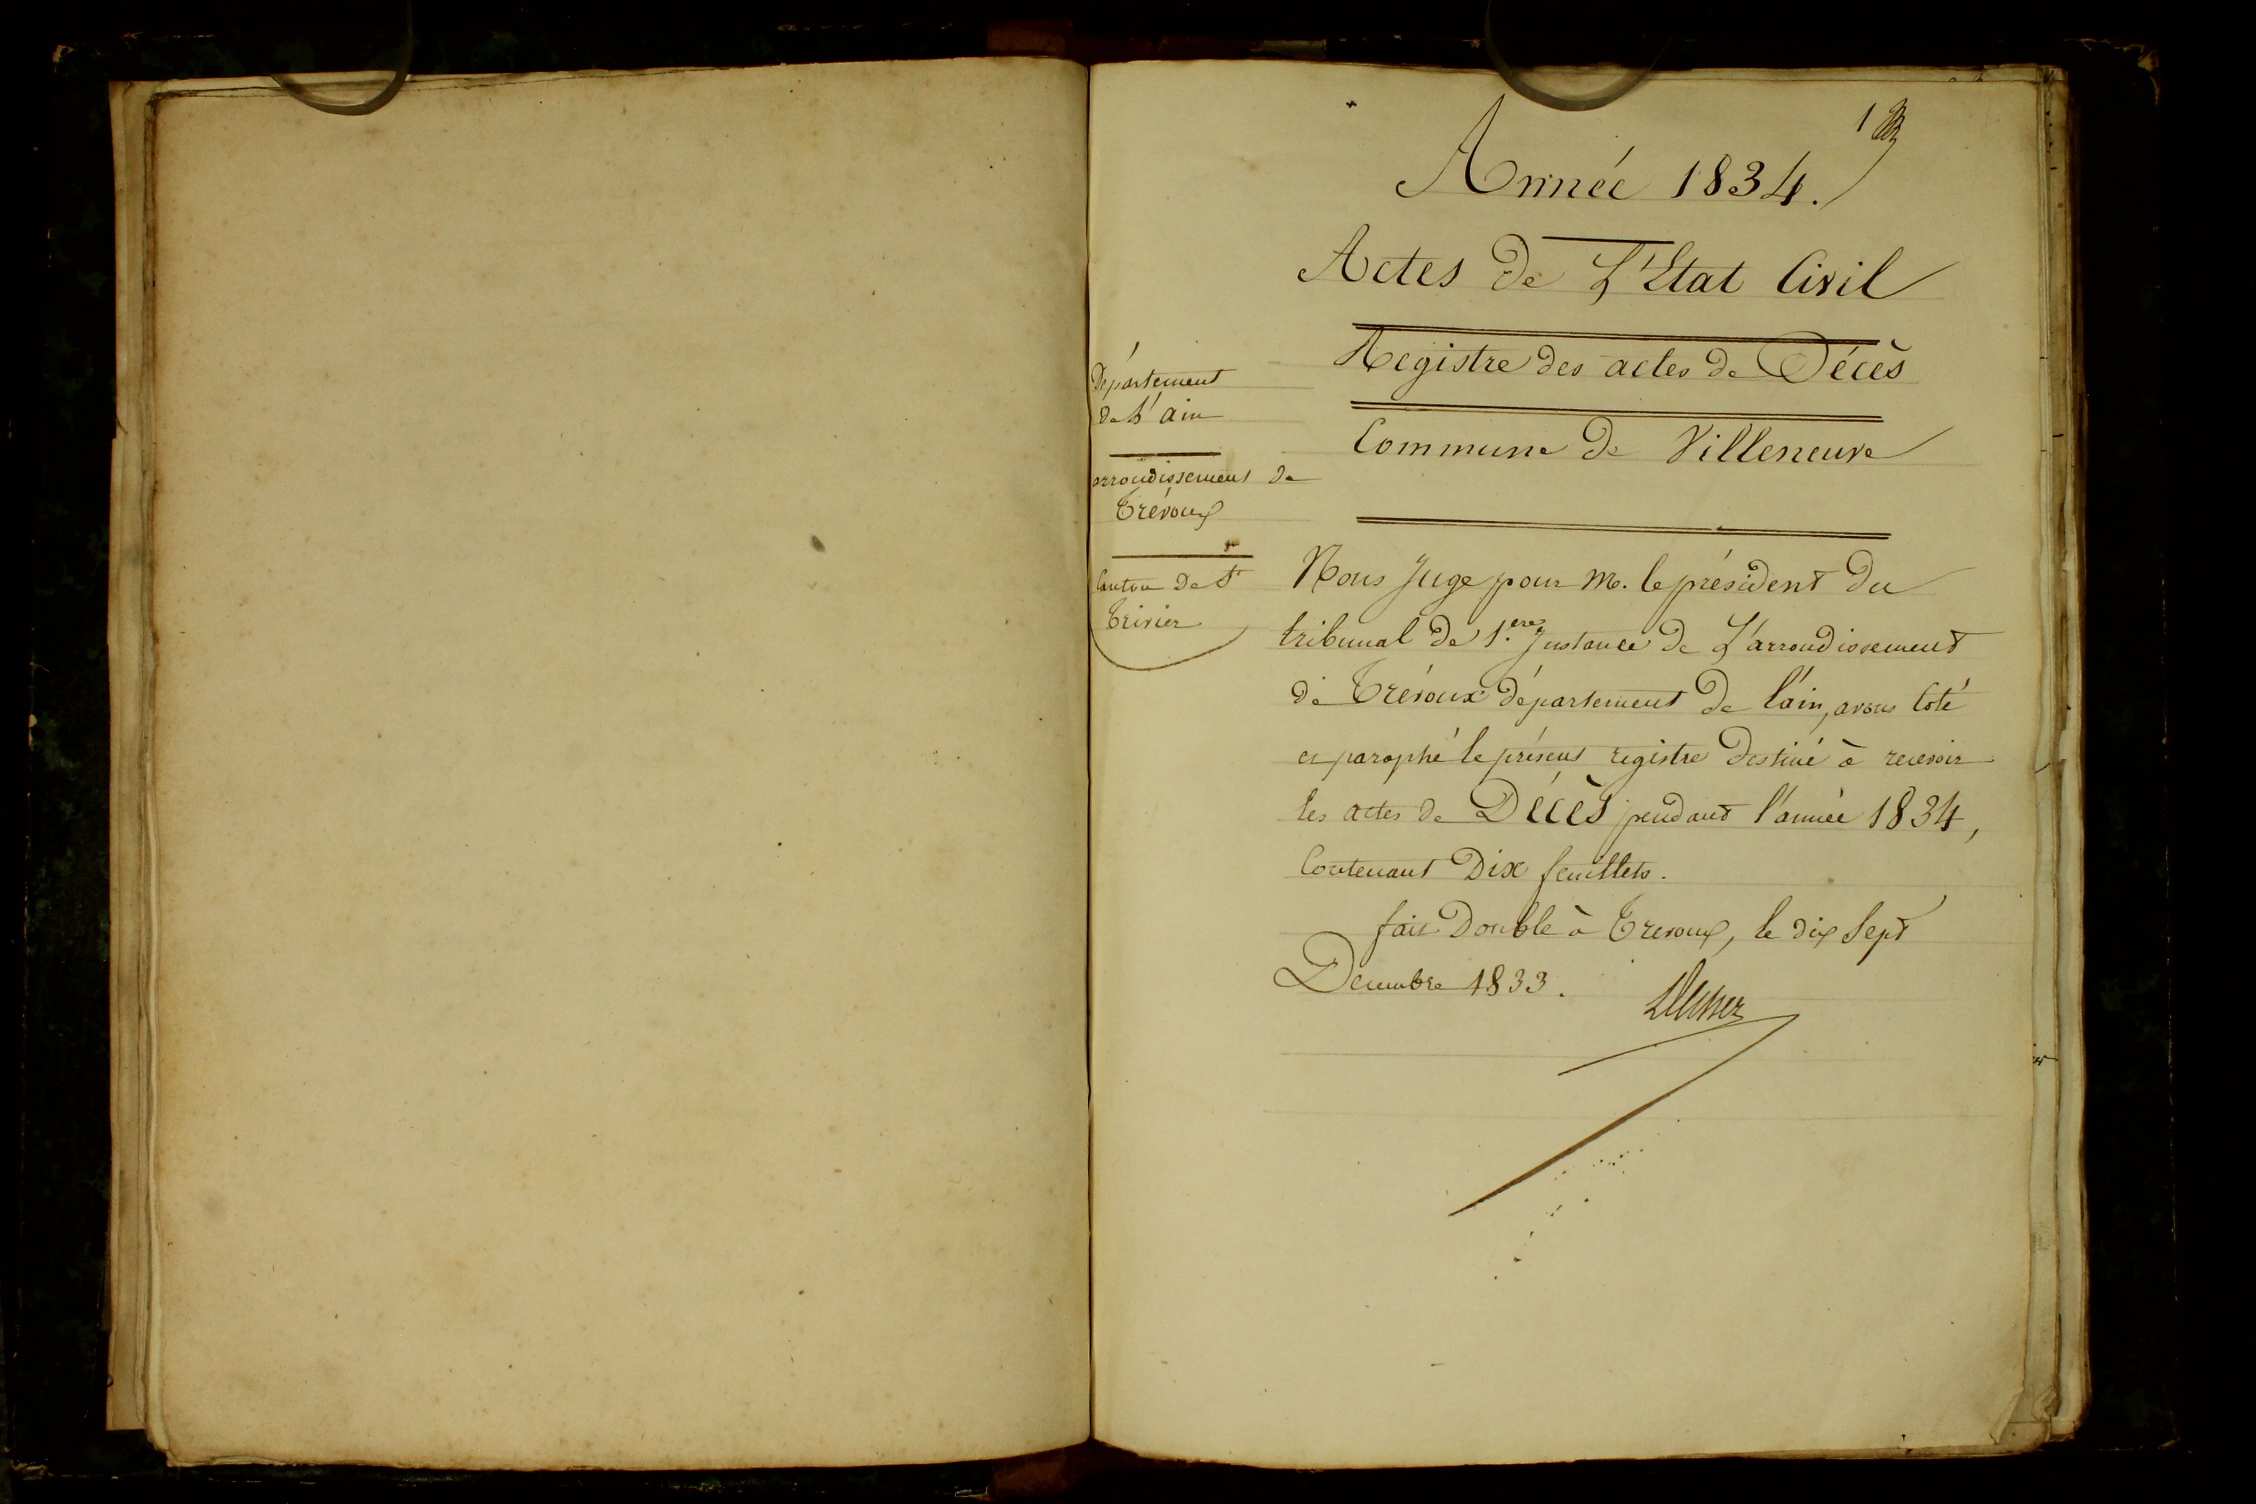 1
Année 1834.
Actes de L'Etat Civil
Registre des actes de Décès
Commune de Villeneuve
Département
de L'ain
arrondissement de
Trévoux
Canton de St
Trivier
Nous Juge pour M. le président du
tribunal de 1.ere Instance de L'arrondissement
de Trévoux département de l'ain, avons Coté
et paraphé le présent registre destiné à recevoir
les actes de Décès pendant l'année 1834,
Contenant Dix feuillets.
fait Double à Trevoux, le dix Sept
Decembre 1833.